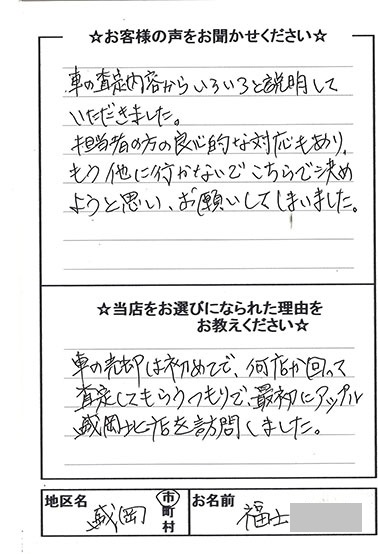 ☆お客様の声をお聞かせください☆
車の査定内容からいろいろと説明して
いただきました。
担当者の方の良心的な対応もあり、
もう他に行かないでこちらで決め
ようと思い、お願いしてしまいました。
☆当店をお選びになられた理由を
お教えください☆
車の売却は初めてで、何店か回って
査定してもらうつもりで、最初にアップル
盛岡北店を訪問しました。
地区名 盛岡 市町村 お名前 福士